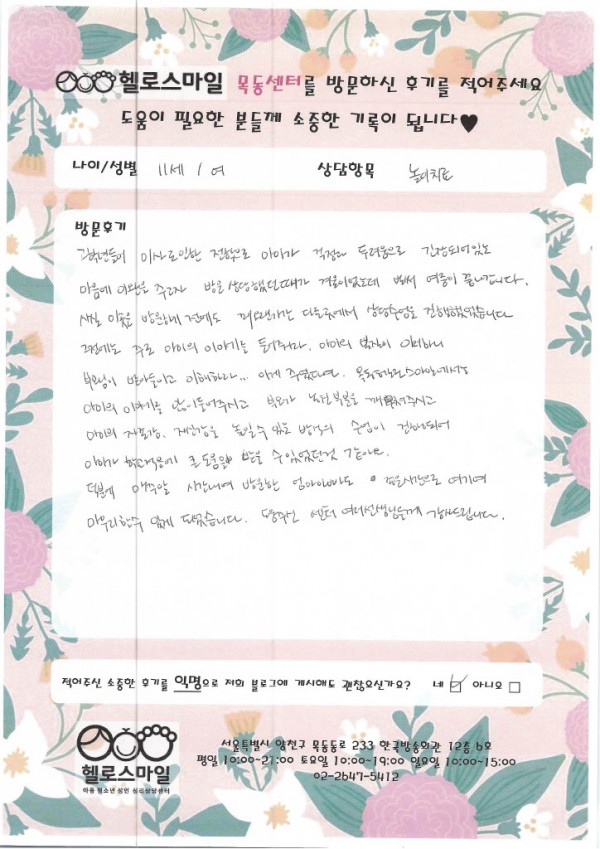 헬로스마일 목동센터를 방문하신 후기를 적어주세요
도움이 필요한 분들께 소중한 기록이 됩니다♥
나이/성별 11세 / 여 상담항목 놀이치료
방문후기
고학년들이 이사로인한 전학으로 아이가 걱정과 두려움으로 긴장되어있는
마음에 안정을 주고자 방문 상담했던때가 겨울이었는데 벌써 여름이 끝나갑니다.
사실 이곳을 방문하기 전에도 저희는 다른곳에서 상담수업을 진행했었습니다
그전에는 주로 아이의 이야기를 들어줘라. 아이의 방식이 이러하니
부모님이 받아들이고 이해하라... 이게 주였다면. 목동헬로스마일에서는
아이의 이야기를 많이들어주시고 부모가 놓친부분을 깨워주시고
아이의 자존감. 자신감을 높일수 있는 방향의 수업이 진행되어
아이가 학교적응에 큰 도움을 받을 수 있었던것 같아요.
덕분에 매주말 시간내어 방문한 엄마아빠도 좋은시간으로 여기며
마무리할수 있게 되었습니다. 도움주신 센터 여러선생님들께 감사드립니다.
적어주신 소중한 후기를 익명으로 저희 블로그에 게시해도 괜찮으신가요? 네 ☑ 아니오 □
헬로스마일
아동 청소년 성인 심리상담센터
서울특별시 양천구 목동동로 233 한국방송회관 12층 6호
평일 10:00~21:00 토요일 10:00~19:00 일요일 10:00~15:00
02-2647-5412